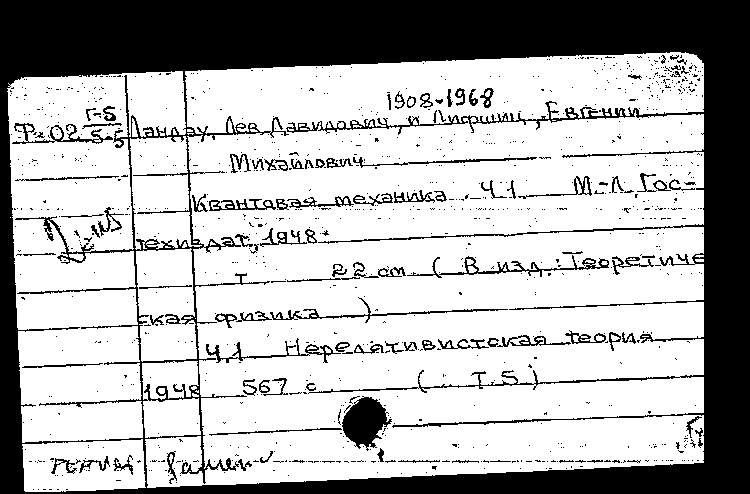 1908-1968
Г-5
Р-02 5-5 Ландау, Лев Давидович, и Лифшиц, Евгений
Михайлович
Квантовая механика. Ч.1 М.-Л. Гос-
техиздат, 1948.
т 22 cm ( В изд.: Теоретиче
ская физика )
Ч.1 Нерелятивистская теория
1948. 567 с ( Т.5)